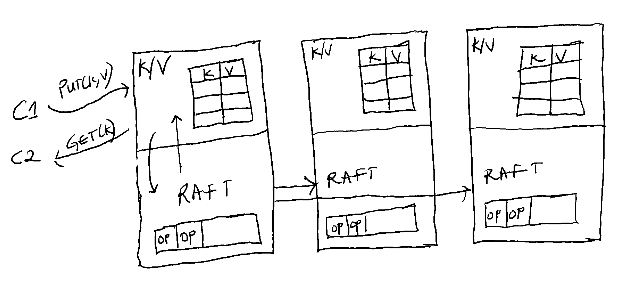 K/V
K V
C1 PUT(K,V)
C2 GET(K)
RAFT
OP OP
K/V
K V
RAFT
OP OP
K/V
K V
RAFT
OP OP